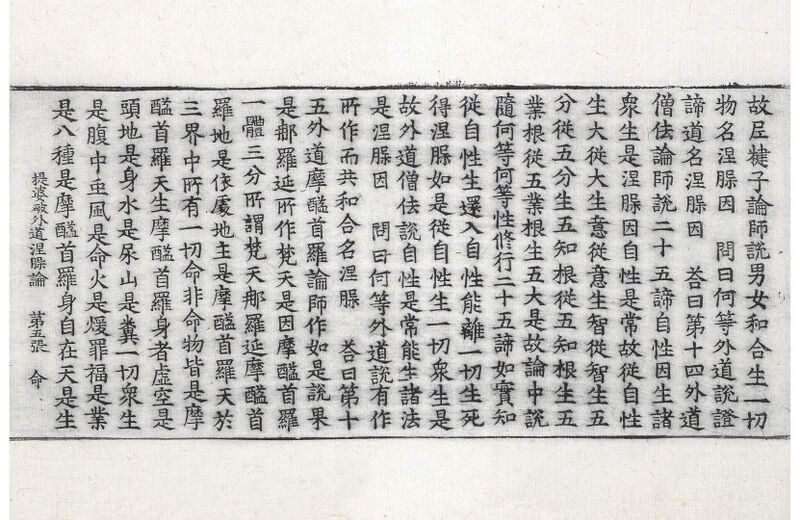 故尼犍子論師說男女和合生一切
物名涅槃因　問曰何等外道說證
諦道名涅槃因　荅曰第十四外道
僧佉論師說二十五諦自性因生諸
衆生是涅槃因自性是常故從自性
生大從大生意從意生智從智生五
分從五分生五知根從五知根生五
業根從五業根生五大是故論中說
隨何等何等性修行二十五諦如實知
從自性生還入自性能離一切生死
得涅槃如是從自性生一切衆生是
故外道僧佉說自性是常能生諸法
是涅槃因　問曰何等外道說有作
所作而共和合名涅槃　荅曰第十
五外道摩醯首羅論師作如是說果
是那羅延所作梵天是因摩醯首羅
一體三分所謂梵天那羅延摩醯首
羅地是依處地主是摩醯首羅天於
三界中所有一切命非命物皆是摩
醯首羅天生摩醯首羅身者虛空是
頭地是身水是尿山是糞一切衆生
是腹中虫風是命火是煖罪福是業
是八種是摩醯首羅身自在天是生
提婆破外道涅槃論　第五張　命